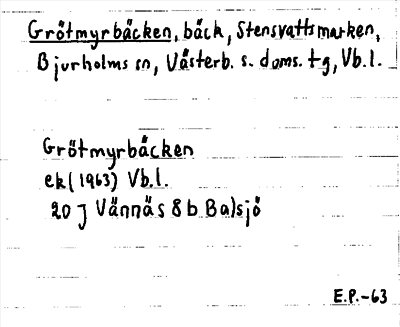 Grötmyrbäcken, bäck, Stensvattsmarken,
Bjurholms sn, Västerb. s. doms. tg, Vb.l.
Grötmyrbäcken
ek (1963) Vb.l.
20 J Vännäs 8 b Balsjö
E.P.-63